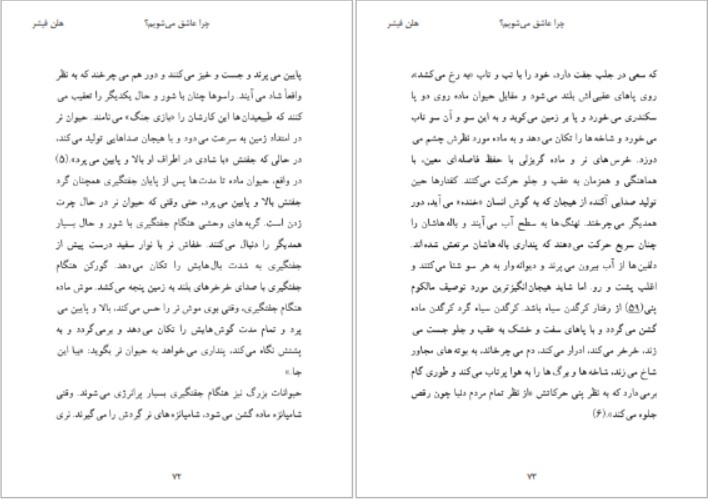 چرا عاشق می‌شویم؟ هلن فیشر
پایین می پرند و جست و خیز می‌کنند و دور هم می چرخند که به نظر
واقعاً شاد می آیند. راسوها چنان با شور و حال یکدیگر را تعقیب می
کنند که طبیعیدان‌ها این کارشان را «بازی جنگ» می‌نامند. حیوان نر
در امتداد زمین به سرعت می‌دود و با هیجان صداهایی تولید می‌کند،
در حالی که جفتش «با شادی در اطراف او بالا و پایین می پرد».(۵)
در واقع، حیوان ماده تا مدت‌ها پس از پایان جفتگیری همچنان گرد
جفتش بالا و پایین می پرد، حتی وقتی که حیوان نر در حال چرت
زدن است. گربه‌های وحشی هنگام جفتگیری با شور و حال بسیار
همدیگر را دنبال می‌کنند. خفاش نر با نوار سفید درست پیش از
جفتگیری به شدت بال‌هایش را تکان می‌دهد. گورکن هنگام
جفتگیری با صدای خرخرهای بلند به زمین پنجه می‌کشد. موش ماده
هنگام جفتگیری، وقتی بوی موش نر را حس می‌کند، بالا و پایین می
پرد و تمام مدت گوش‌هایش را تکان می‌دهد و برمی‌گردد و به
پشتش نگاه می‌کند، پنداری می‌خواهد به حیوان نر بگوید: «بیا این
جا.»
حیوانات بزرگ نیز هنگام جفتگیری بسیار پرانرژی می شوند. وقتی
شامپانزه ماده گشن می‌شود، شامپانزه‌های نر گردش را می گیرند. نری
۷۲
چرا عاشق می‌شویم؟ هلن فیشر
که سعی در جلب جفت دارد، خود را با تب و تاب «به رخ می‌کشد»،
روی پاهای عقبی‌اش بلند می‌شود و مقابل حیوان ماده روی دو پا
سکندری می خورد و پا بر زمین می‌کوبد و به این سو و آن سو تاب
می خورد و شاخه ها را تکان می‌دهد و به ماده مورد نظرش چشم می
دوزد. خرس‌های نر و ماده گریزلی با حفظ فاصله‌ای معین، با
هماهنگی و همزمان به عقب و جلو حرکت می‌کنند. کفتارها حین
تولید صدایی آکنده از هیجان که به گوش انسان «خنده» می آید، دور
همدیگر می‌چرخند. نهنگ‌ها به سطح آب می‌آیند و باله‌هاشان را
چنان سریع حرکت می‌دهند که پنداری باله‌هاشان مرتعش شده‌اند.
دلفین‌ها از آب بیرون می‌پرند و دیوانه‌وار به هر سو شنا می‌کنند و
اغلب پشت و رو. اما شاید هیجان‌انگیزترین مورد توصیف مالکوم
پنی(۵۹) از رفتار کرگدن سیاه باشد. کرگدن سیاه گرد کرگدن ماده
گشن می‌گردد و با پاهای سفت و خشک به عقب و جلو جست می
زند، خرخر می‌کند، ادرار می‌کند، دم می چرخاند، به بوته های مجاور
شاخ می زند، شاخه ها و برگ ها را به هوا پرتاب می‌کند و طوری گام
برمی‌دارد که به نظر پنی حرکاتش «از نظر تمام مردم دنیا چون رقص
جلوه می‌کند».(۶)
۷۳